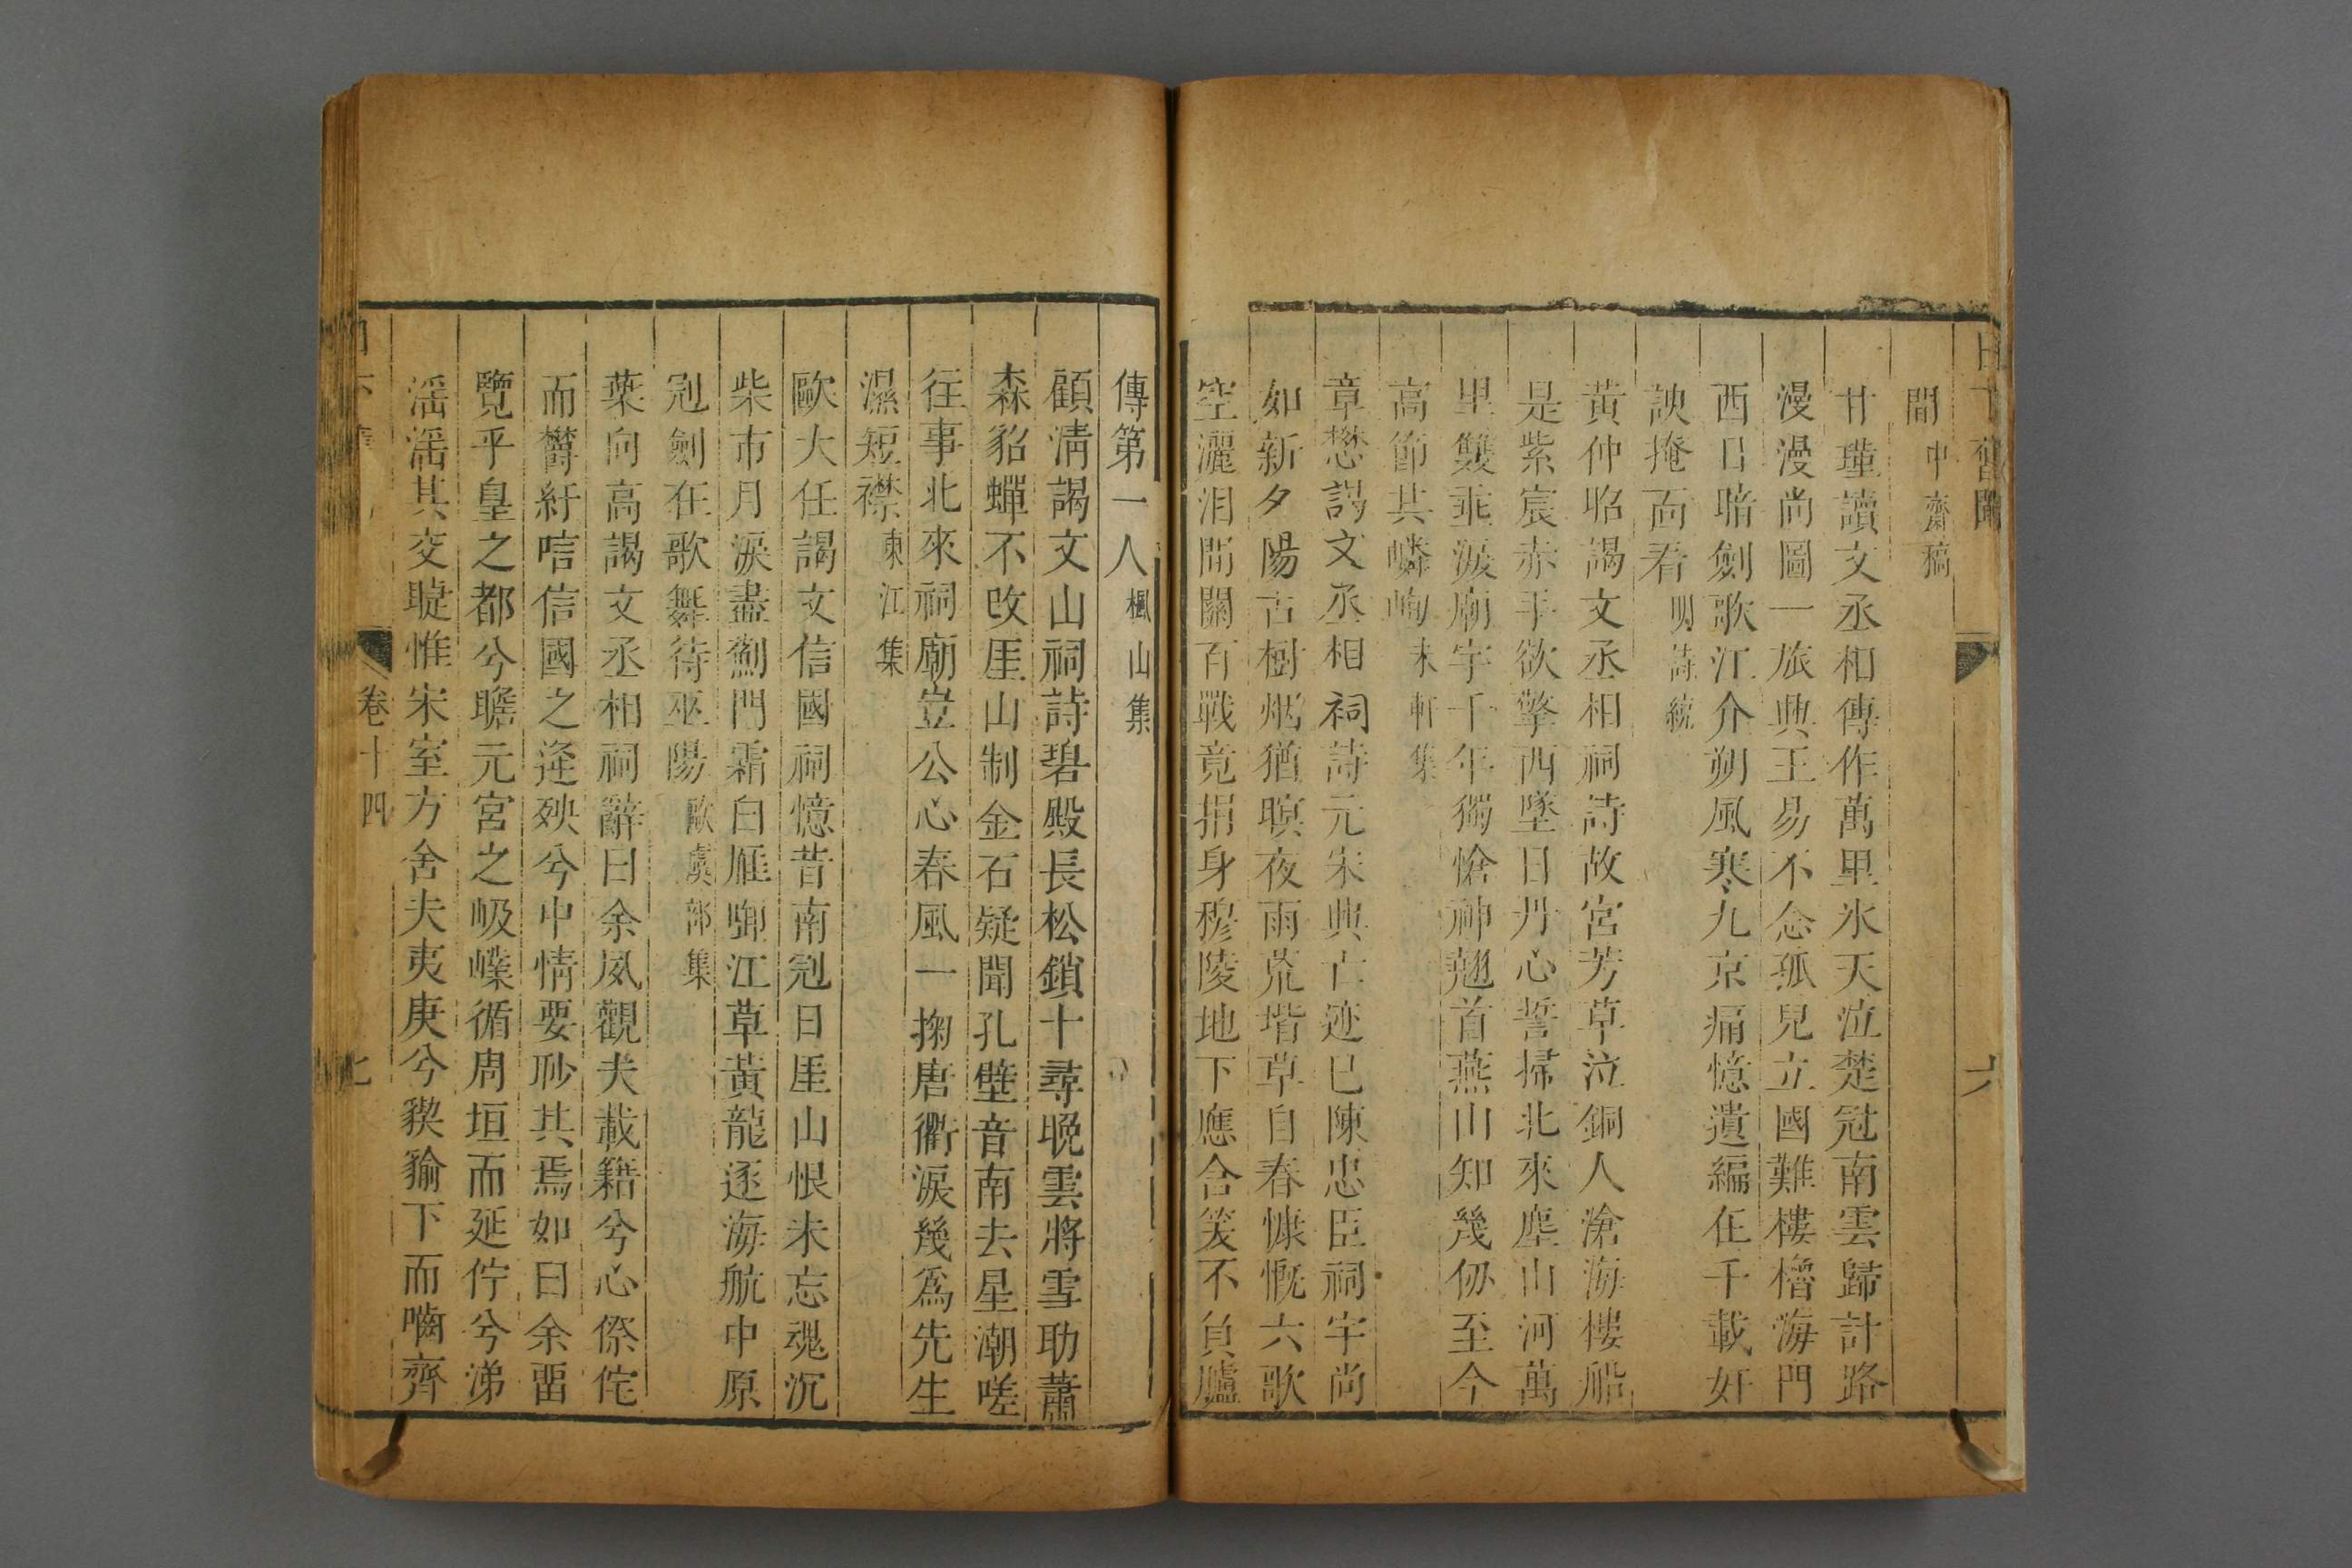 日下舊聞
六
間中齋稿
甘瑾讀文丞相傳作萬里氷天泣楚冠南雲歸計路
漫漫尚圖一旅興王易不念孤兒立國難樓櫓海門
西日暗劍歌江介朔風寒九京痛憶遺編在千載奸
諛掩面看明詩統
黃仲昭謁文丞相祠詩故宮芳草泣銅人滄海樓船
是紫宸赤手欲擎西墜日丹心誓掃北來塵山河萬
里雙垂淚廟宇千年獨愴神翹首燕山知幾仭至今
高節其嶙峋未軒集
章懋謁文丞相祠詩元宋興亡迹已陳忠臣祠宇尚
如新夕陽古樹烟猶暝夜雨荒堦草自春慷慨六歌
空灑泪間關百戰竟捐身穆陵地下應含笑不負臚
傳第一人楓山集
顧淸謁文山祠詩碧殿長松鎖十尋晚雲將雪助蕭
森貂蟬不改厓山制金石疑聞孔壁音南去星潮嗟
往事北來祠廟豈公心春風一掬唐衢淚幾爲先生
濕短襟東江集
歐大任謁文信國祠憶昔南冠日厓山恨未忘魂沉
柴市月淚盡薊門霜白雁啣江草黃龍逐海航中原
冠劍在歌舞待巫陽歐虞部集
葉向高謁文丞相祠辭曰余夙觀夫載籍兮心傺侘
而欝紆唁信國之逢殃兮中情要眇其焉如曰余畱
覽乎皇之都兮瞻元宮之岋嶫循周垣而延佇兮涕
滛滛其交睫惟宋室方舍夫夷庚兮猰㺄下而嚙齊
卷十四
七